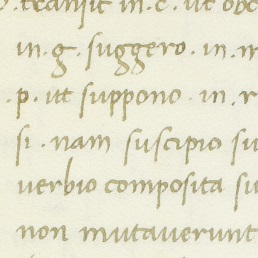 transit in .c. ut occ
in .g. suggero . in .m
. p . ut suppono . in . r
si . nam suscipio su
verbio composita su
non mutaverunt